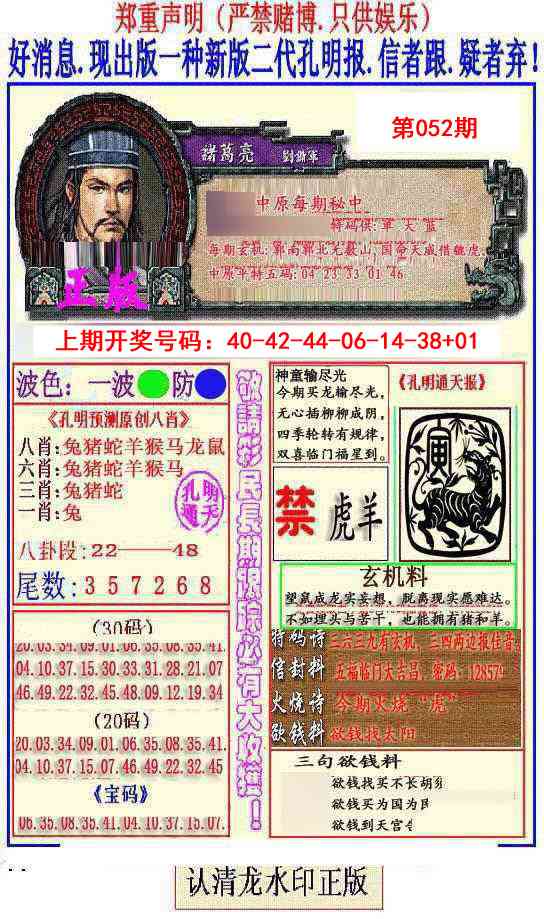 郑重声明（严禁赌博.只供娱乐）
好消息.现出版一种新版二代孔明报.信者跟.疑者弃!
第052期
諸葛亮 劉謝軍
中原每期秘中
特码供:單 天 蓝
每期玄机:
中原平特五码:04 23 33 01 46
正版
上期开奖号码：40-42-44-06-14-38+01
波色：一波 防
《孔明预测原创八肖》
八肖:兔猪蛇羊猴马龙鼠
六肖:兔猪蛇羊猴马
三肖:兔猪蛇
一肖:兔
孔明
通天
八卦段:22——48
尾数:357268
(30码)
20.03.34.09.01.06.35.08.35.41
04.10.37.15.30.33.31.28.21.07
46.49.22.32.45.48.09.12.19.34
(20码)
20.03.34.09.01.06.35.08.35.41.
04.10.37.15.07.46.49.22.32.45
《宝码》
06.35.08.35.41.04.10.37.15.07.
敬請彩民長期跟踪必有大收獲！
神童输尽光
今期买龙输尽光,
无心插柳柳成阴,
四季轮转有规律,
双喜临门福星到.
《孔明通天报》
禁 虎羊
寅
玄机料
望鼠成龙实妄想，脱离现实愿难达。
不如埋头与苦干，也能拥有猪和羊。
特码诗 三六三九有玄机，三四两边报佳音
信封料 五福临门大吉昌，密码：12857
火烧诗 今期火烧“虎”
欲钱料 欲钱找太阳
三句欲钱料
欲钱找买不长胡
欲钱买为国为
欲钱到天宫
认清龙水印正版